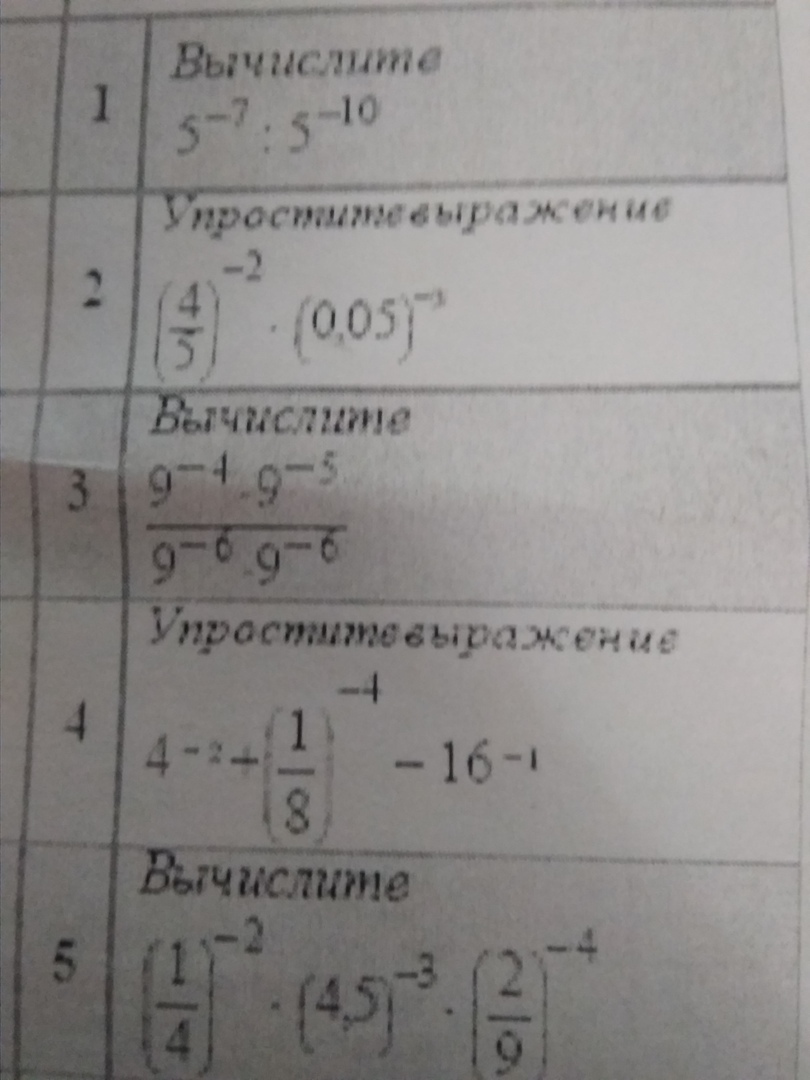 1
Вычислите
5⁻⁷ : 5⁻¹⁰
2
Упроститевыражение
(4/5)⁻² · (0,05)⁻³
3
Вычислите
9⁻⁴ · 9⁻⁵
9⁻⁶ · 9⁻⁶
4
Упроститевыражение
4⁻² + (1/8)⁻⁴ − 16⁻¹
5
Вычислите
(1/4)⁻² · (4,5)⁻³ · (2/9)⁻⁴